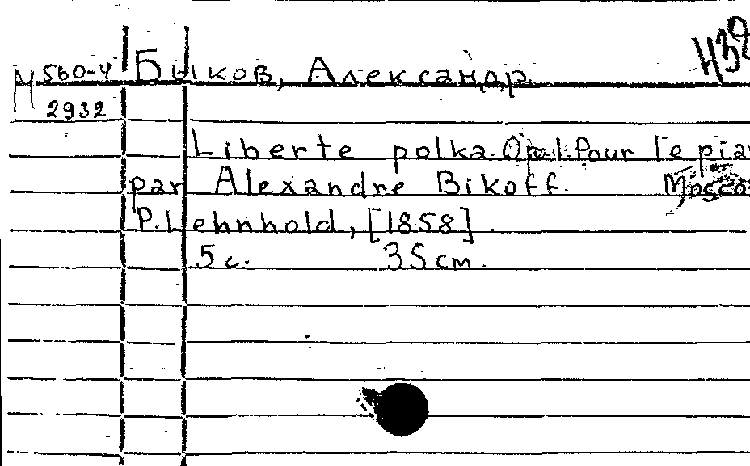 439
М 560-4 Быков, Александр
2932
Liberte polka. Op. 1. Pour le pia
par Alexandre Bikoff. Mosco
P. Lehnhold, [1858].
5 c. 35 cm.